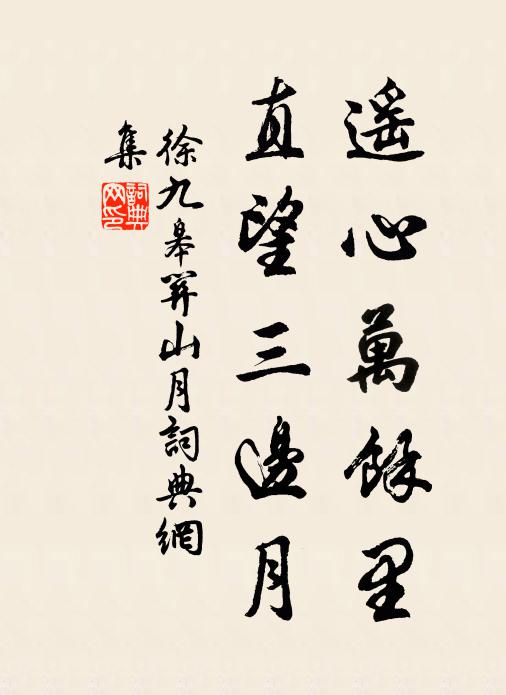 遥心萬餘里
直望三邊月
徐九皋關山月詞典網
集
詞典网印